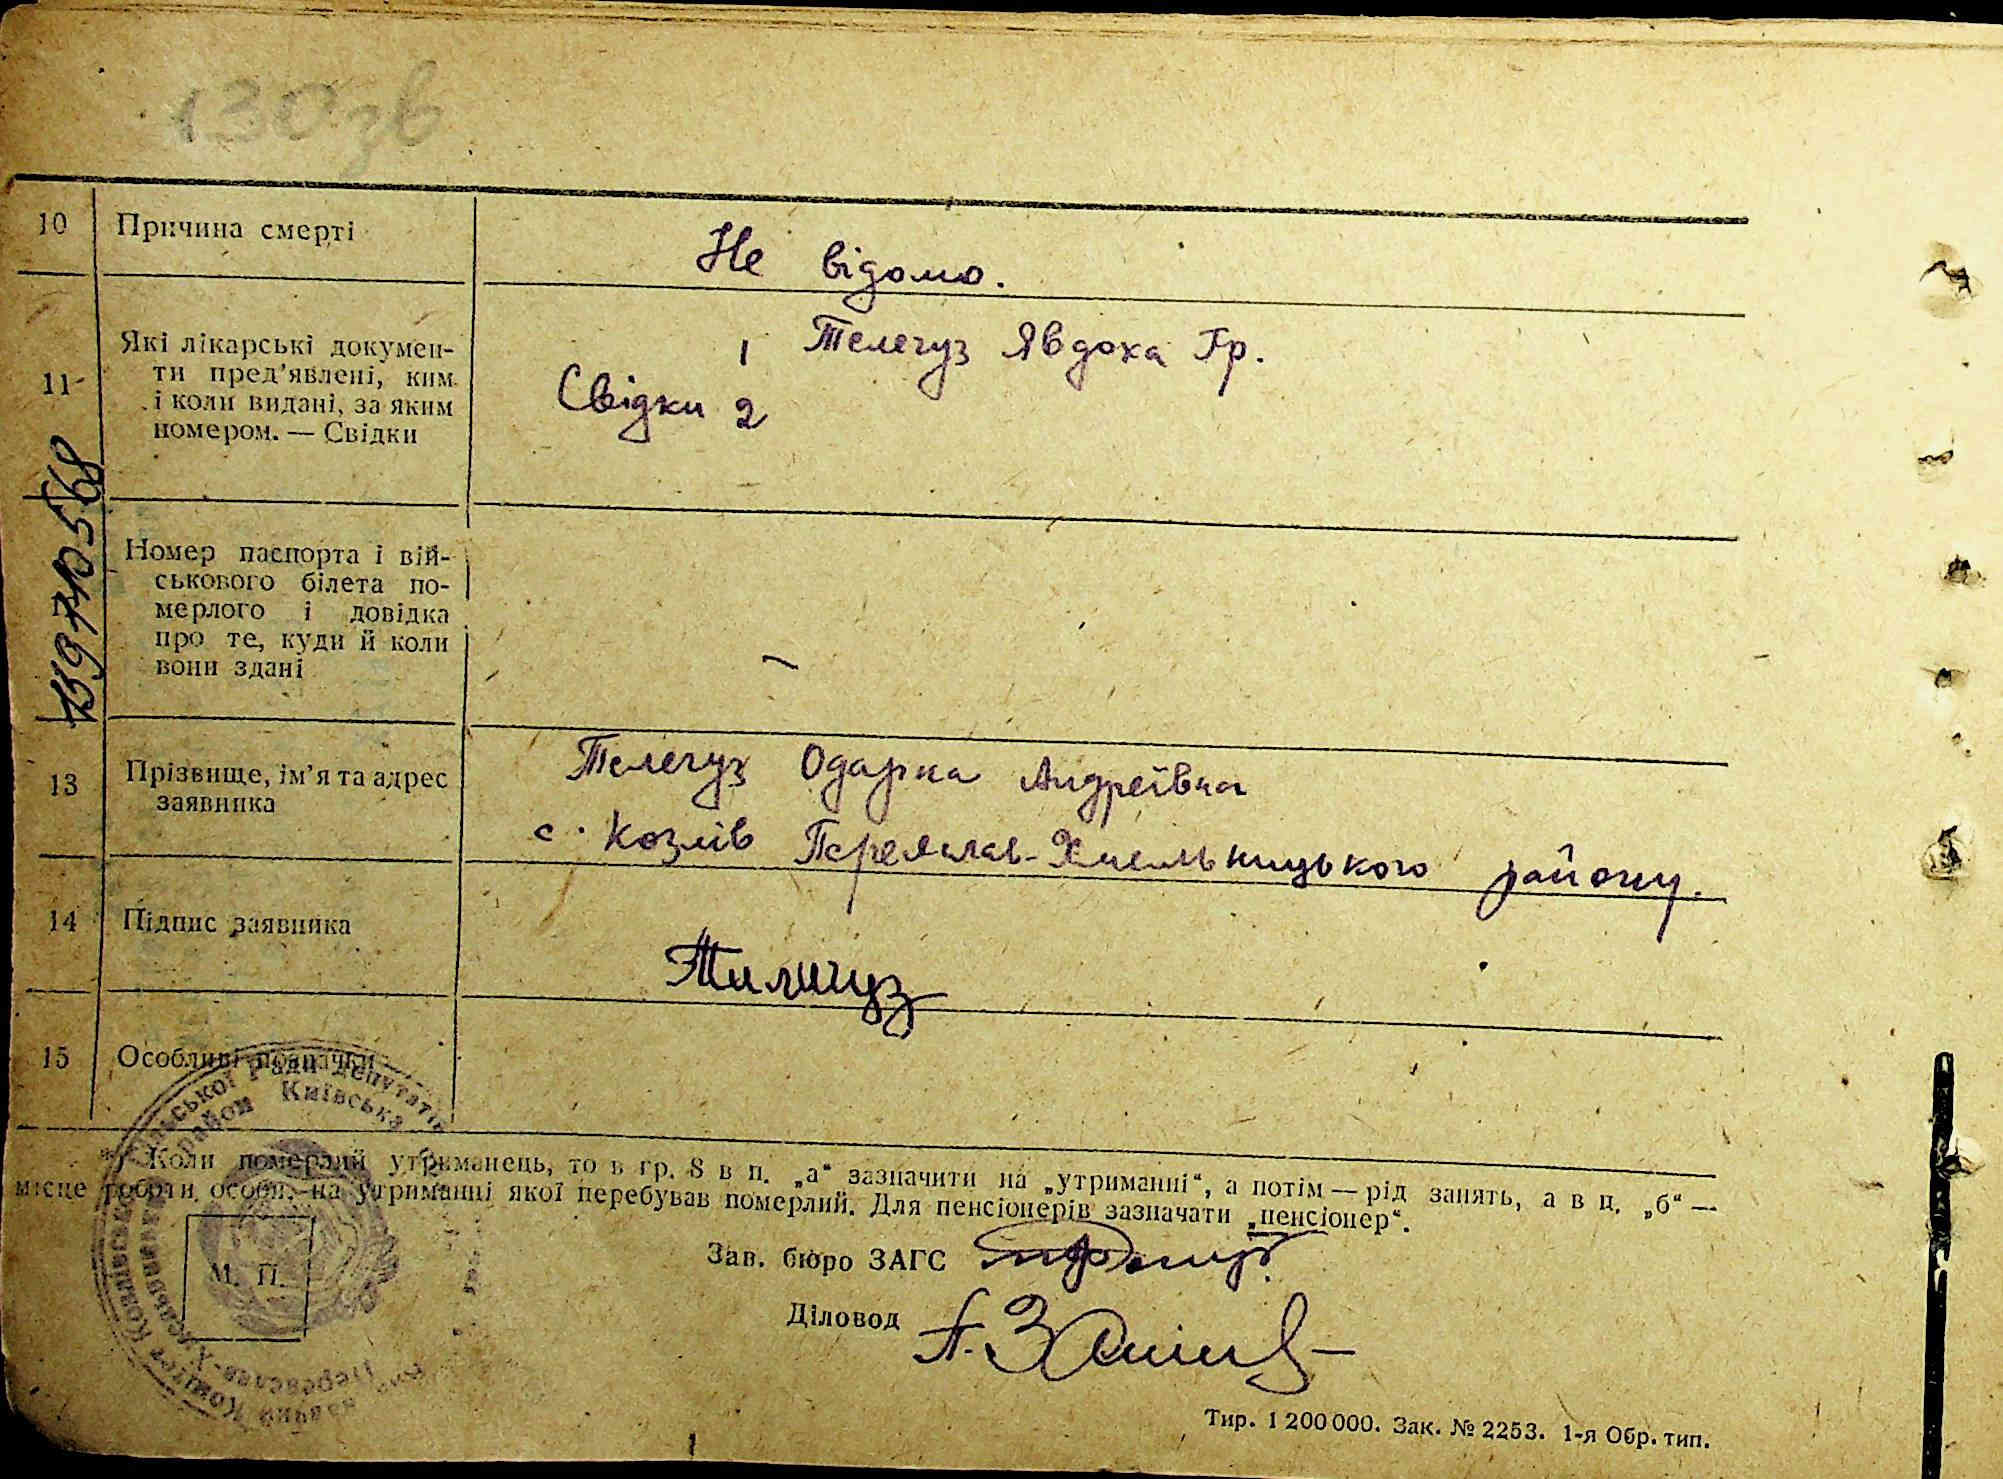 130зв
10 Причина смерті Не відомо.
11 Які лікарські докумен-
ти пред’явлені, ким
і коли видані, за яким
номером. — Свідки
1 Телегуз Явдоха Гр.
Свідки 2
Номер паспорта і вій-
ськового білета по-
мерлого і довідка
про те, куди й коли
вони здані
—
13 Прізвище, ім’я та адрес
заявника
Телегуз Одарка Андреївна
с. Козлів Переяслав-Хмельницького району.
14 Підпис заявника
Тилигуз
15 Особливі позначки
*) Коли померлий утриманець, то в гр. 8 в п. „а“ зазначити на „утриманні“, а потім — рід занять, а в п. „б“ —
місце роботи особи, на утриманні якої перебував померлий. Для пенсіонерів зазначати „пенсіонер“.
М. П.
Зав. бюро ЗАГС
Діловод
Ради депутатів
район Київська
Тир. 1 200 000. Зак. № 2253. 1-я Обр. тип.